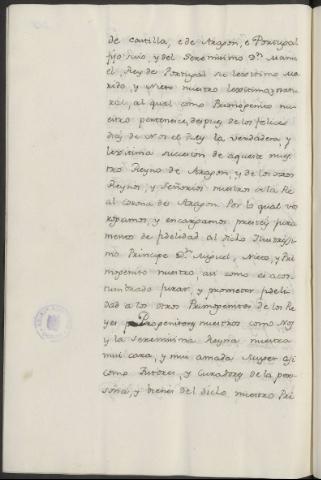 de Castilla, e de Aragon, e Portugal
fijo suio, y del Serenisimo Dn. Manu
el, Rey de Portugal su lexitimo Ma
rido, y Nieto nuestro lexitimo, y natu
ral, al qual como Primogenito nu
estro pertenece, despues de los felices
dias de Nos el Rey la verdadera, y
lexitima sucesion de aqueste nues
tro Reyno de Aragon, y de los otros
Reynos, y Señorios nuestros a la Re
al corona de Aragon. Por lo qual vos
rogamos, y encargamos presteis jura
mento de fidelidad al dicho Ilustrissi
mo Principe Dn. Miguel, Nieto, y Pri
mogenito nuestro, asi como es acos
tumbrado jurar, y prometer fideli
dad a los otros Primogenitos de los Re
yes Progenitores nuestros como Nos
y la Serenisima Reyna nuestra
mui cara, y mui amada Muger asi
como Tutores, y Curadores de la per
sona, y bienes del dicho nuestro Pri